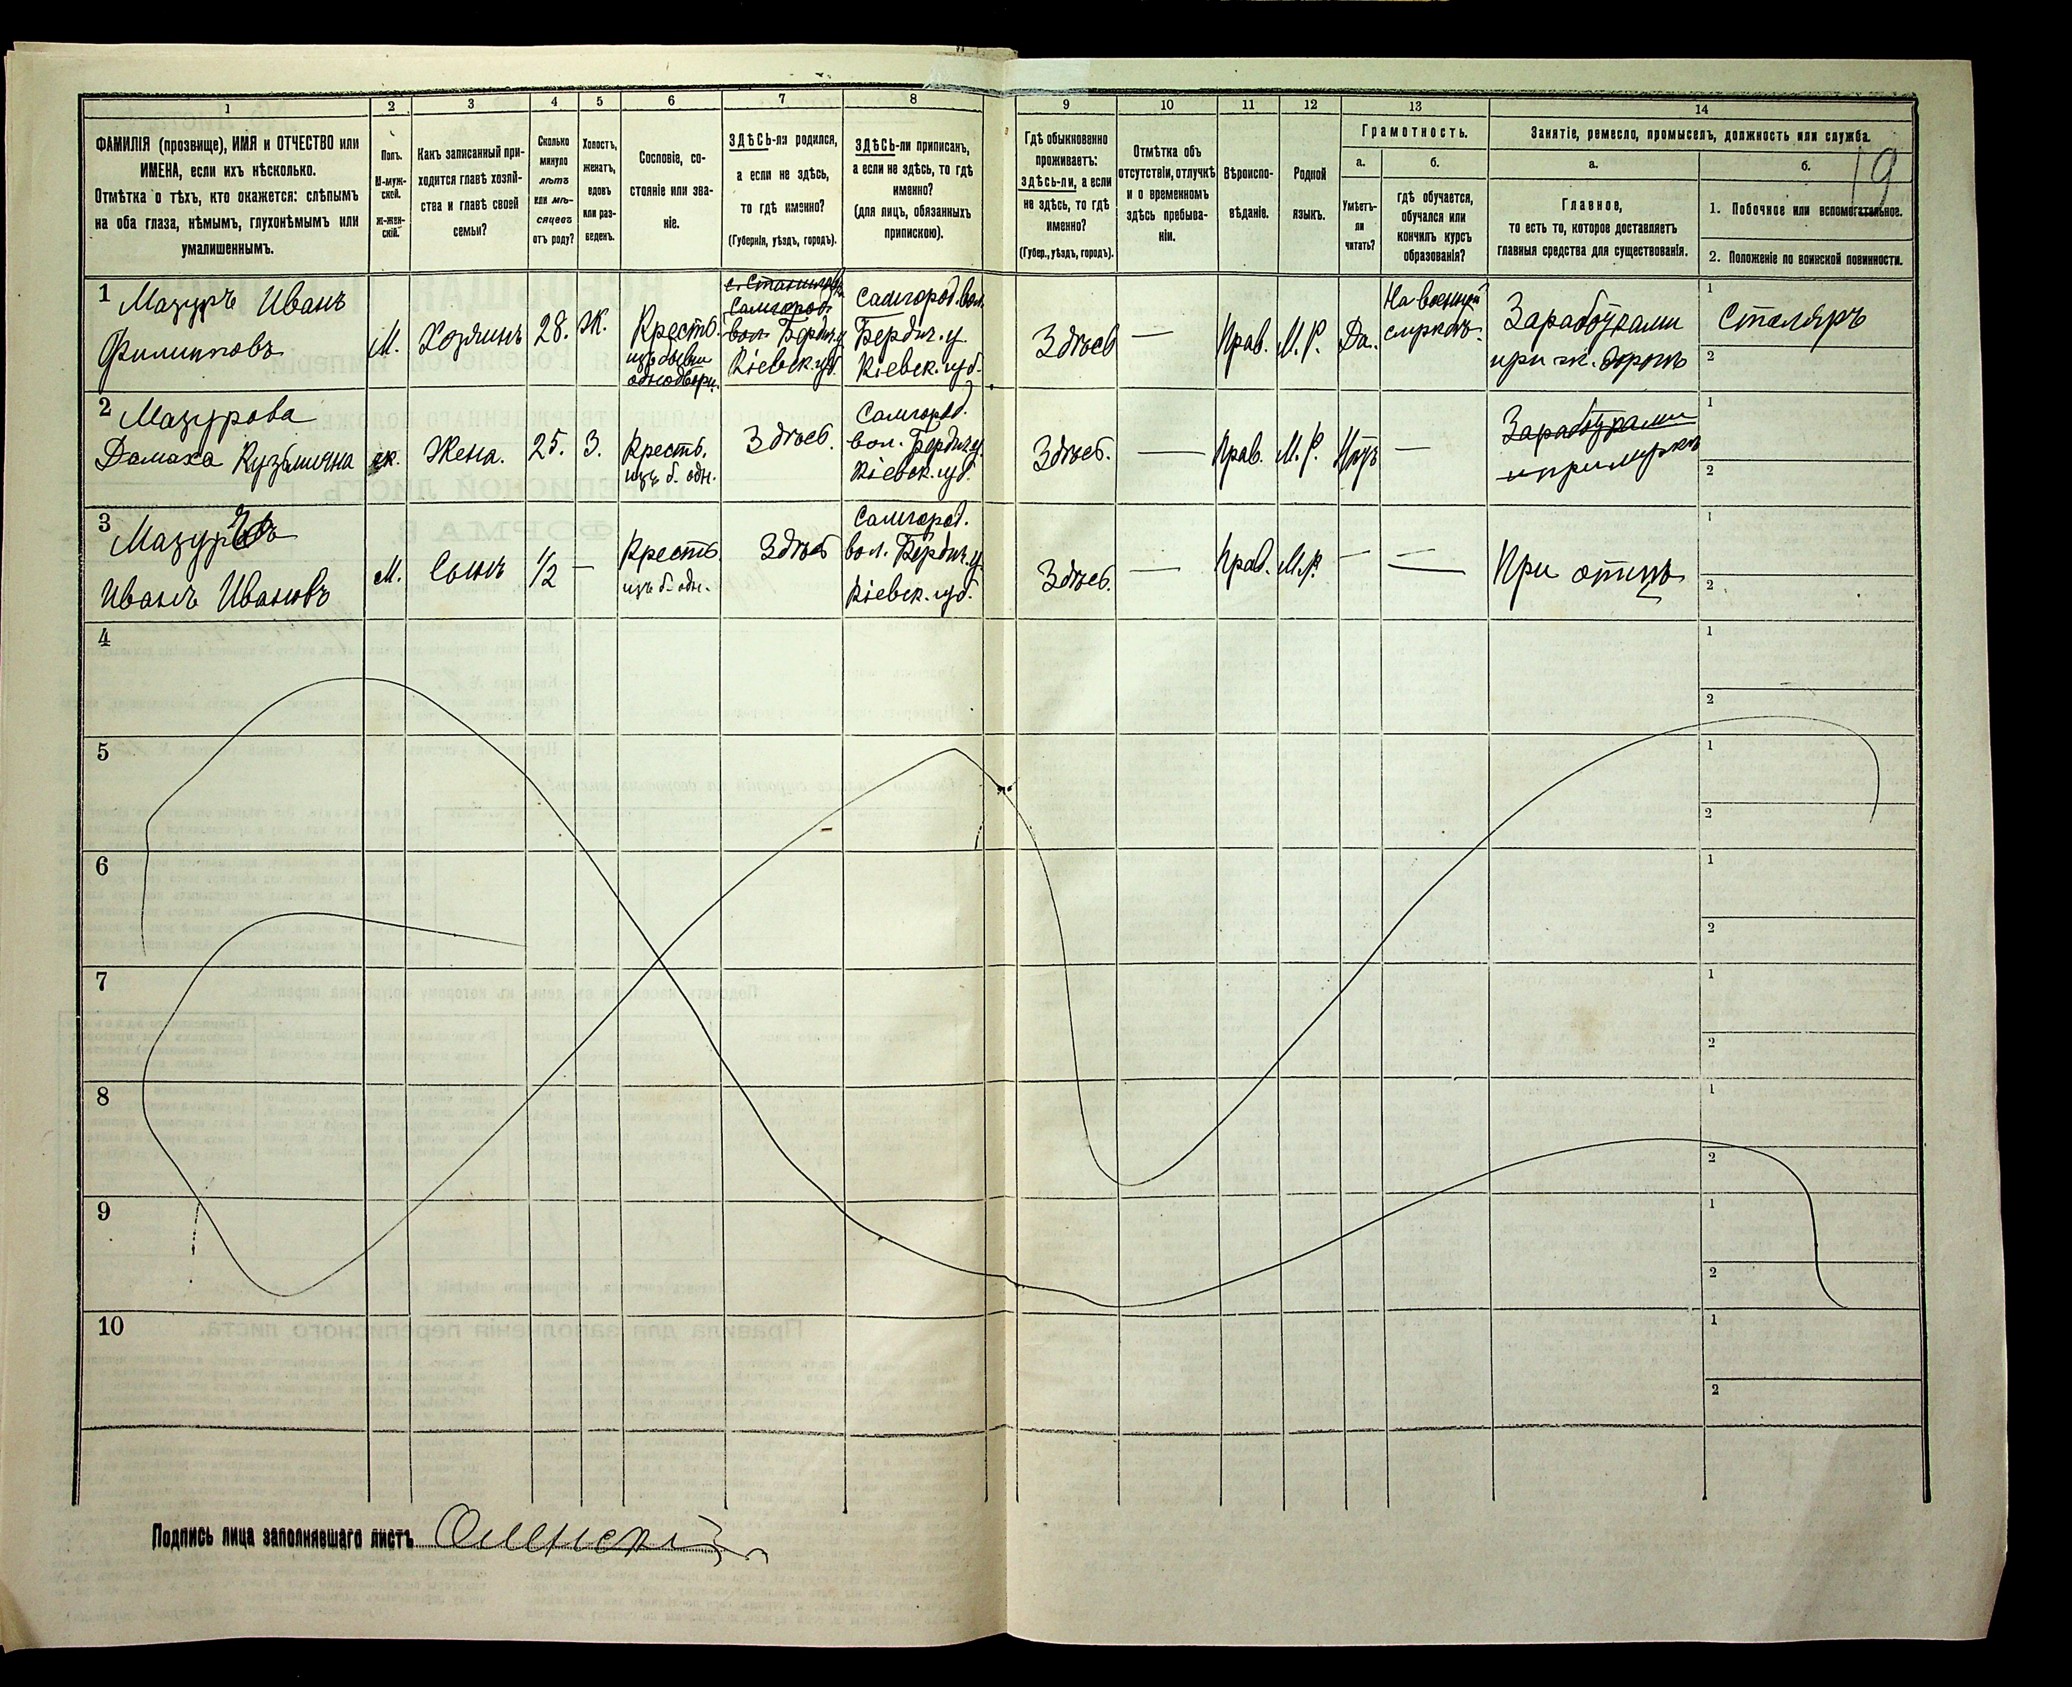 19
1
ФАМИЛІЯ (прозвище), ИМЯ и ОТЧЕСТВО или
ИМЕНА, если ихъ нѣсколько.
Отмѣтка о тѣхъ, кто окажется: слѣпымъ
на оба глаза, нѣмымъ, глухонѣмымъ или
умалишеннымъ.
2
Полъ.
М-муж-
ской.
ж-жен-
скій.
3
Какъ записанный при-
ходится главѣ хозяй-
ства и главѣ своей
семьи?
4
Сколько
минуло
лѣтъ
или мѣ-
сяцевъ
отъ роду?
5
Холостъ,
женатъ,
вдовъ
или раз-
веденъ.
6
Сословіе, со-
стояніе или зва-
ніе.
7
ЗДѢСЬ-ли родился,
а если не здѣсь,
то гдѣ именно?
(Губернія, уѣздъ, городъ).
8
ЗДѢСЬ-ли приписанъ,
а если не здѣсь, то гдѣ
именно?
(для лицъ, обязанныхъ
припискою).
9
Гдѣ обыкновенно
проживаетъ:
здѣсь-ли, а если
не здѣсь, то гдѣ
именно?
(Губер., уѣздъ, городъ).
10
Отмѣтка объ
отсутствіи, отлучкѣ
и о временномъ
здѣсь пребыва-
ніи.
11
Вѣроиспо-
вѣданіе.
12
Родной
языкъ.
13
Грамотность.
а.
Умѣетъ-
ли
читать?
б.
гдѣ обучается,
обучался или
кончилъ курсъ
образованія?
14
Занятіе, ремесло, промыселъ, должность или служба.
а.
Главное,
то есть то, которое доставляетъ
главныя средства для существованія.
б.
1. Побочное или вспомогательное.
2. Положеніе по воинской повинности.
1
Мазуръ Иванъ
Филипповъ
М.
Хозяинъ
28.
Ж.
Крестъ.
изъ бывш
однодвор.
Самгород.
вол. Бердич. у
Кіевск. губ.
Самгород. вол.
Бердич. у
Кіевск. губ.
Здѣсь
—
Прав.
М. Р.
Да.
На военной
службѣ.
при ж. дорогѣ
1
Столяръ
2
2
Мазурова
Домаха Кузьмична
ж.
Жена.
25.
З.
Крестъ.
изъ б. одн.
Здѣсь.
Самгород.
вол. Бердич. у.
Кіевск. губ.
Здѣсь.
—
Прав.
М. Р.
Нѣтъ
—
1
2
3
Иванъ Ивановъ
М.
Сынъ
1/2
—
Крестъ
изъ б. одн.
Здѣсь
Самгород.
вол. Бердич. у.
Кіевск. губ.
Здѣсь.
—
Прав.
М. Р.
—
—
При отцѣ
1
2
4
1
2
5
1
2
6
1
2
7
1
2
8
1
2
9
1
2
10
1
2
Подпись лица заполнявшаго листъ